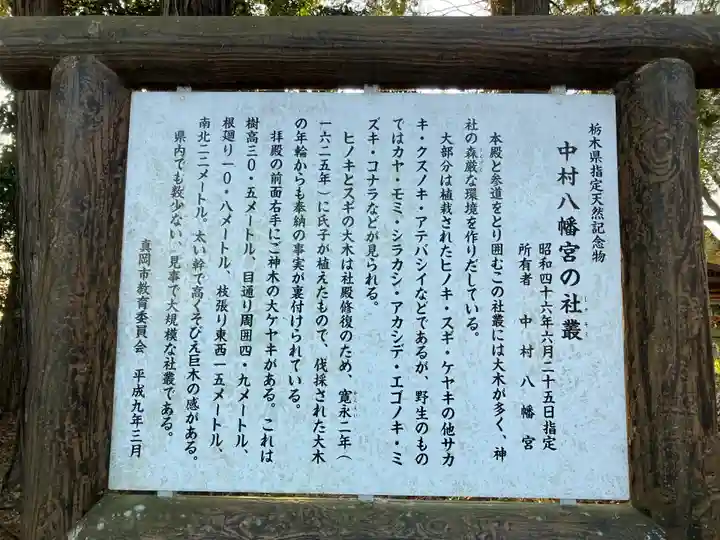 栃木県指定天然記念物
中村八幡宮の社叢
昭和四十六年六月二十五日指定
所有者　中村八幡宮
本殿と参道をとり囲むこの社叢には大木が多く、神
社の森厳な環境を作りだしている。
大部分は植栽されたヒノキ・スギ・ケヤキの他サカ
キ・クスノキ・アテバシイなどであるが、野生のもの
ではカヤ・モミ・シラカシ・アカシデ・エゴノキ・ミ
ズキ・コナラなどが見られる。
ヒノキとスギの大木は社殿修復のため、寛永二年（
一六二五年）に氏子が植えたもので、伐採された大木
の年輪からも奉納の事実が裏付けられている。
拝殿の前面右手にご神木の大ケヤキがある。これは
樹高三０・五メートル、目通り周囲四・九メートル、
根廻り一０・八メートル、枝張り東西一五メートル、
南北二二メートル、太い幹で高くそびえ巨木の感がある。
県内でも数少ない、見事で大規模な社叢である。
真岡市教育委員会　平成九年三月